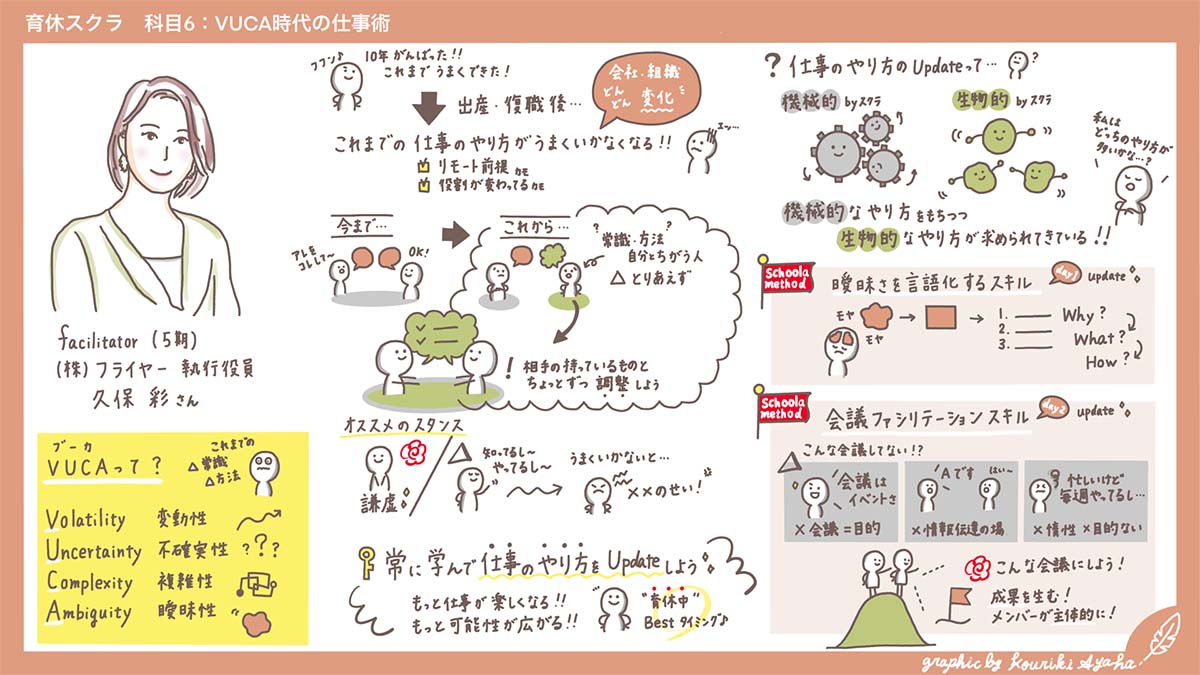 育休スクラ　科目6：VUCA時代の仕事術
facilitator (5期)
(株)フライヤー 執行役員
久保 彩さん
ブーカ
VUCAって？
これまでの
△常識
△方法
Volatility 変動性
Uncertainty 不確実性 ???
Complexity 複雑性
Ambiguity 曖昧性
フフン♪
10年がんばった!!
これまでうまくできた!
出産・復職後…
会社・組織
どんどん 変化
これまでの仕事のやり方がうまくいかなくなる!!
エッ…
リモート前提 カモ
役割が変わってる カモ
今まで…
アレをコレして〜
OK!
これから…
? ?
常識・方法
自分とちがう人
△ とりあえず
! 相手の持っているものと
ちょっとずつ 調整しよう
オススメのスタンス
謙虚
△ 知ってるし〜
やってるし〜
うまくいかないと…
××のせい!
常に学んで仕事のやり方をUpdateしよう
もっと仕事が楽しくなる!!
もっと可能性が広がる!!
"育休中"
Bestタイミング♪
? 仕事のやり方のUpdateって… ?
機械的 byスクラ
生物的 byスクラ
私は
どっちのやり方が
多いかな…?
機械的なやり方をもちつつ
生物的なやり方が求められてきている!!
Schoola method
曖昧さを言語化するスキル
day1 update
モヤ
モヤ
1.
2.
3.
Why?
What?
How?
Schoola method
会議ファシリテーションスキル
day2 update
△ こんな会議してない!?
会議は
イベントさ
×会議=目的
Aです
はい〜
×情報伝達の場
忙しいけど
毎週やってるし…
×惰性 ×目的ない
こんな会議にしよう!
成果を生む!
メンバーが主体的に!
graphic by Kouriki Ayaha.